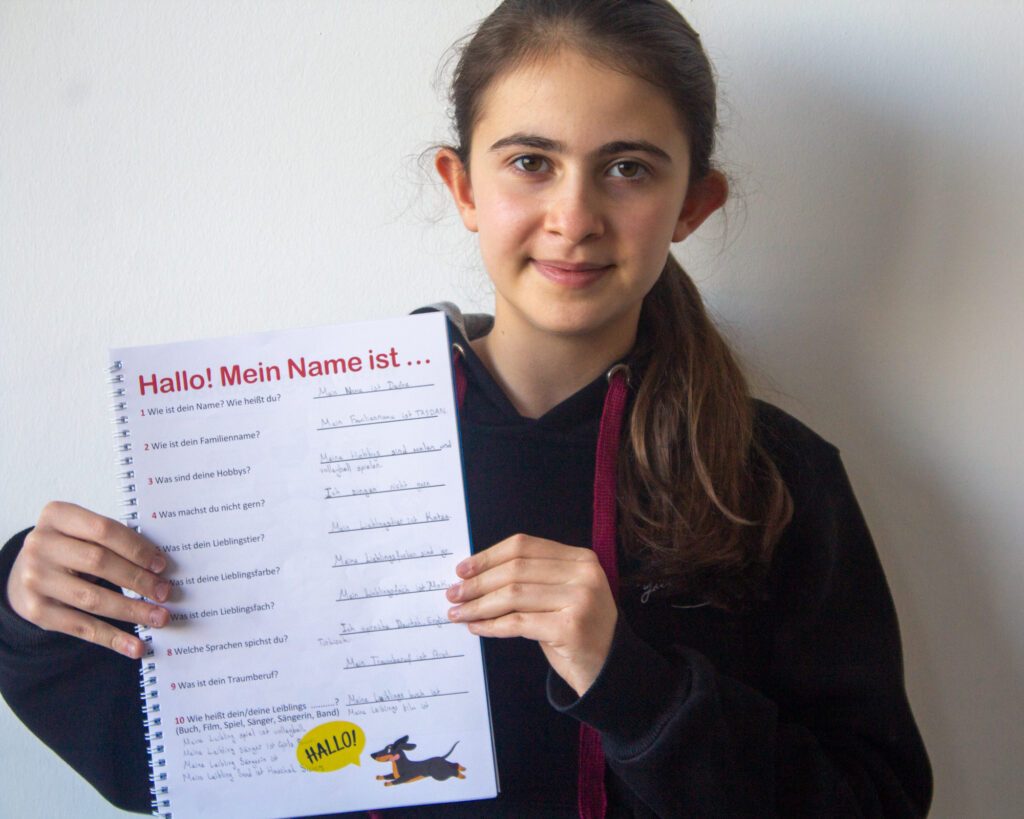 Hallo! Mein Name ist ...
1 Wie ist dein Name? Wie heißt du?
Mein Name ist
2 Wie ist dein Familienname?
Mein Familienname ist TAŞDAN.
3 Was sind deine Hobbys?
Meine Hobbys sind malen und
volleyball spielen.
4 Was machst du nicht gern?
Ich singen nicht gern
Was ist dein Lieblingstier?
Mein Lieblingstier ist Katze.
Was ist deine Lieblingsfarbe?
Meine Lieblingsfarben sind
Was ist dein Lieblingsfach?
Mein Lieblingsfach ist
8 Welche Sprachen spichst du?
Ich spreche Deutsch
Türkisch.
9 Was ist dein Traumberuf?
Mein Traumberuf ist
10 Wie heißt dein/deine Leiblings ...........?
(Buch, Film, Spiel, Sänger, Sängerin, Band)
Meine Leiblings buch ist
Meine Leiblings film ist
Meine Leibling spiel ist volleyball.
Meine Leibling Sänger ist
Meine Leibling Sängerin ist
Meine Leibling band ist
HALLO!